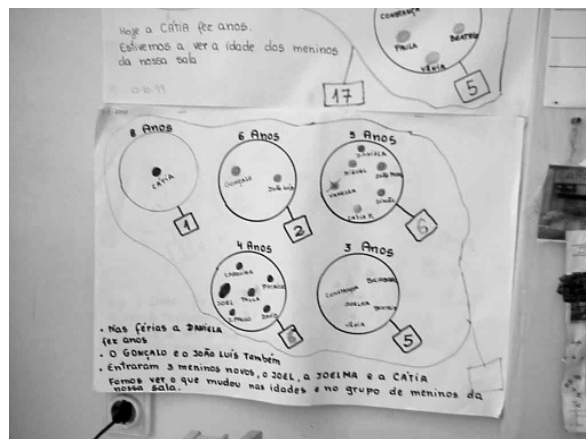 Hoje a CÁTIA fez anos.
Estivemos a ver a idade dos meninos
da nossa sala
CONSTANÇA
PAULA
BEATRIZ
VÂNIA
17
5
8 Anos
CÁTIA
1
6 Anos
GONÇALO
JOÃO LUÍS
2
5 Anos
DANIELA
MIGUEL
VANESSA
CÁTIA
6
4 Anos
JOEL
PAULA
DAVID
6
3 Anos
CONSTANÇA
JOELMA
BEATRIZ
VÂNIA
5
• Nas férias a DANIELA
fez anos
• O GONÇALO e o JOÃO LUÍS Também
• Entraram 3 meninos novos, o JOEL, a JOELMA e a CÁTIA
Fomos ver o que mudou nas idades e no grupo de meninos da
nossa sala.